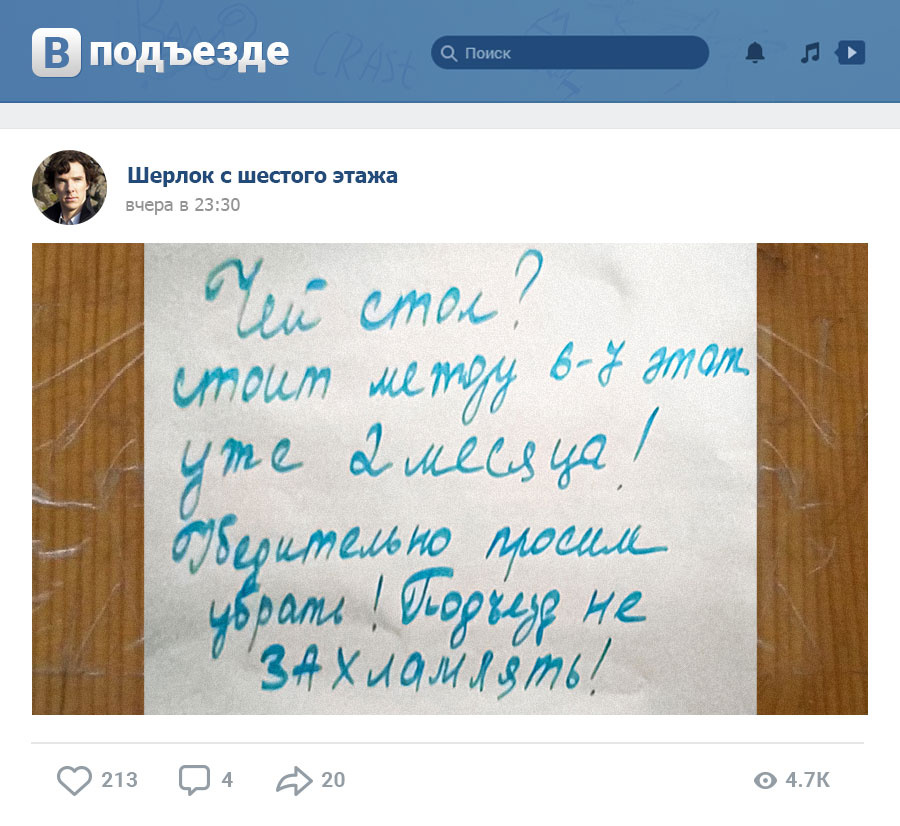 В подъезде
Поиск
CRASH
Шерлок с шестого этажа
вчера в 23:30
Чей стол?
стоит между 6-7 этаж
уже 2 месяца!
Убедительно просим
убрать! Подъезд не
ЗАХламлять!
213
4
20
4.7K